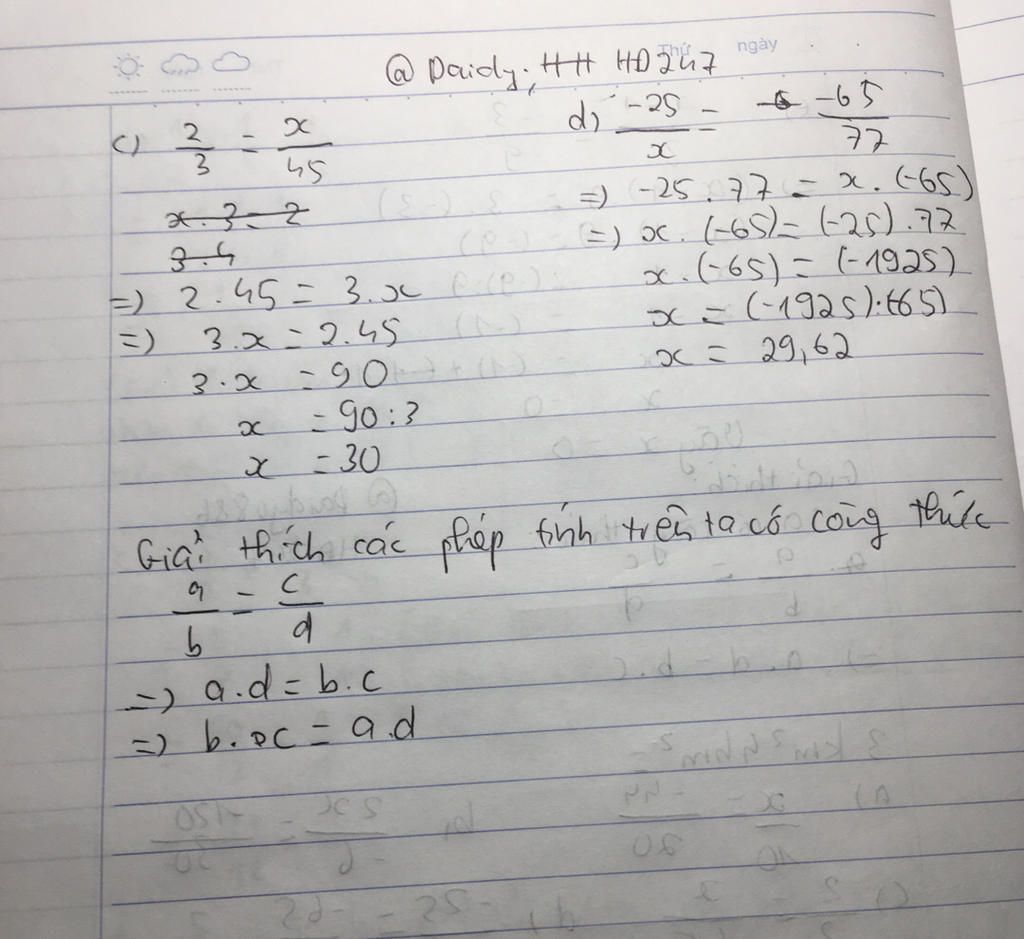 Thứ ngày
@ Daidy, HH HD247
c) 2/3 = x/45
x.3=2
3.4
=) 2.45 = 3.x
=) 3.x = 2.45
3.x = 90
x = 90:3
x = 30
d) -25/x = -65/77
=) -25.77 = x.(-65)
=) x.(-65) = (-25).77
x.(-65) = (-1925)
x = (-1925):(-65)
x = 29,62
Giải thích các phép tính trên ta có công thức
a/b = c/d
=) a.d = b.c
=) b.c = a.d